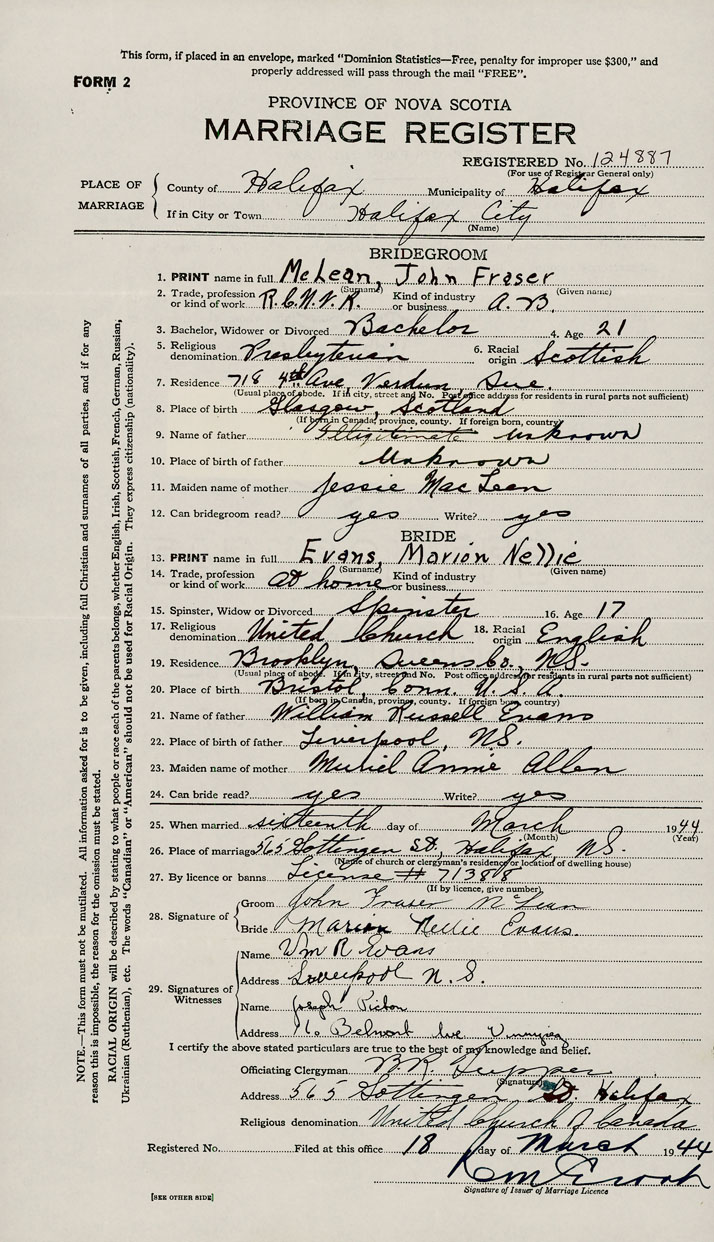 This form, if placed in an envelope, marked "Dominion Statistics—Free, penalty for improper use $300," and
properly addressed will pass through the mail "FREE".
FORM 2
PROVINCE OF NOVA SCOTIA
MARRIAGE REGISTER
REGISTERED No. 124887
(For use of Registrar General only)
PLACE OF MARRIAGE
County of Halifax Municipality of Halifax
If in City or Town Halifax City
(Name)
BRIDEGROOM
1. PRINT name in full McLean, John Fraser
(Surname) (Given name)
2. Trade, profession or kind of work R.C.N.V.R. Kind of industry or business A.B.
3. Bachelor, Widower or Divorced Bachelor 4. Age 21
5. Religious denomination Presbyterian 6. Racial origin Scottish
7. Residence 718 4th Ave, Verdun, Que.
(Usual place of abode. If in city, street and No. Post office address for residents in rural parts not sufficient)
8. Place of birth Glasgow, Scotland
(If born in Canada, province, county. If foreign born, country)
9. Name of father Illegitimate unknown
10. Place of birth of father Unknown
11. Maiden name of mother Jessie MacLean
12. Can bridegroom read? yes Write? yes
BRIDE
13. PRINT name in full Evans, Marion Nellie
(Surname) (Given name)
14. Trade, profession or kind of work at home Kind of industry or business
15. Spinster, Widow or Divorced Spinster 16. Age 17
17. Religious denomination United Church 18. Racial origin English
19. Residence Brooklyn, Queens Co., N.S.
(Usual place of abode. If in city, street and No. Post office address for residents in rural parts not sufficient)
20. Place of birth Bristol, Conn. U.S.A.
(If born in Canada, province, county. If foreign born, country)
21. Name of father William Russell Evans
22. Place of birth of father Liverpool, N.S.
23. Maiden name of mother Muriel Annie Allen
24. Can bride read? yes Write? yes
25. When married sixteenth day of March 1944
(Month) (Year)
26. Place of marriage 565 Gottingen St., Halifax, N.S.
(Name of church or clergyman's residence or location of dwelling house)
27. By licence or banns License # 71388
(If by licence, give number)
28. Signature of
Groom John Fraser McLean
Bride Marion Nellie Evans.
29. Signatures of Witnesses
Name Wm R Evans
Address Liverpool N.S.
Name Joseph
Address Belmont Ave Winnipeg
I certify the above stated particulars are true to the best of my knowledge and belief.
Officiating Clergyman
(Signature)
Address 565 Gottingen St. Halifax
Religious denomination United Church of Canada
Registered No. Filed at this office 18 day of March 1944
Signature of Issuer of Marriage Licence
[SEE OTHER SIDE]
NOTE.—This form must not be mutilated. All information asked for is to be given, including full Christian and surnames of all parties, and if for any
reason this is impossible, the reason for the omission must be stated.
RACIAL ORIGIN will be described by stating to what people or race each of the parents belongs, whether English, Irish, Scottish, French, German, Russian,
Ukrainian (Ruthenian), etc. The words "Canadian" or "American" should not be used for Racial Origin. They express citizenship (nationality).